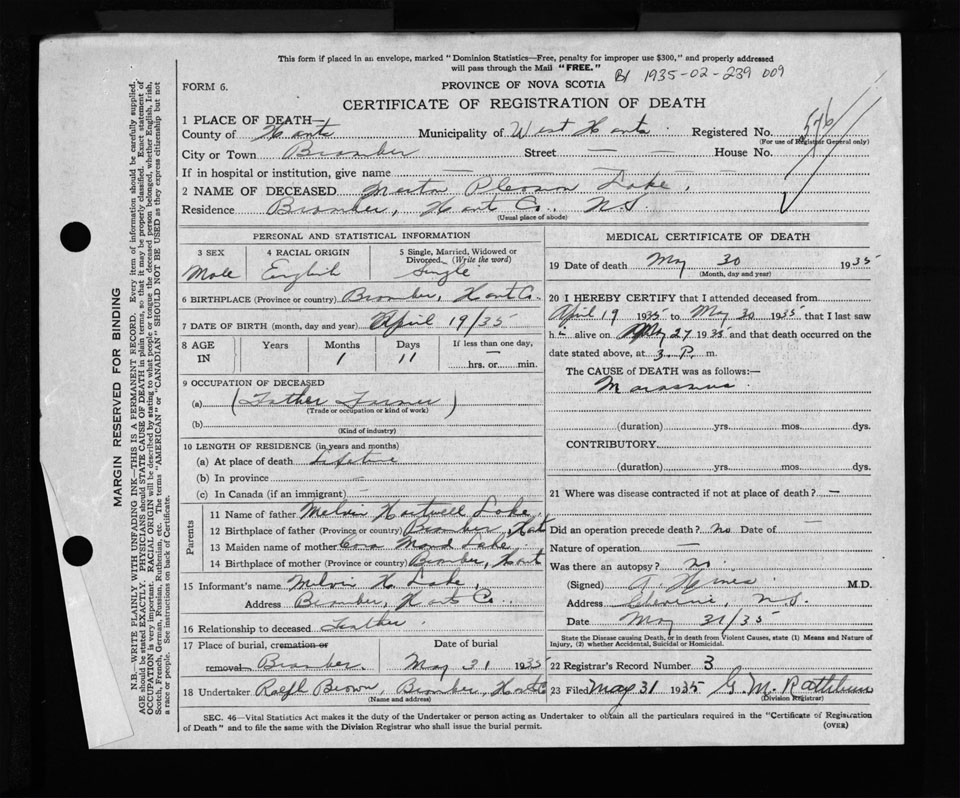 This form if placed in an envelope, marked "Dominion Statistics—Free, penalty for improper use $300," and properly addressed
will pass through the Mail "FREE."
B1 1935-02-239 009
FORM 6.
PROVINCE OF NOVA SCOTIA
CERTIFICATE OF REGISTRATION OF DEATH
1 PLACE OF DEATH—
County of Hants Municipality of West Hants. Registered No. 546
(For use of Registrar General only)
City or Town Bramber Street — — House No. —
If in hospital or institution, give name — — — —
2 NAME OF DECEASED Pleason Lake,
Residence Bramber, Hants Co., N.S.
(Usual place of abode)
PERSONAL AND STATISTICAL INFORMATION
3 SEX
Male
4 RACIAL ORIGIN
English
5 Single, Married, Widowed or
Divorced (Write the word)
Single
6 BIRTHPLACE (Province or country) Bramber, Hants Co.
7 DATE OF BIRTH (month, day and year) April 19/35
8 AGE
IN
Years
Months
1
Days
11
If less than one day,
—
hrs. or min.
9 OCCUPATION OF DECEASED
(a) (Father Farmer)
(Trade or occupation or kind of work)
(b)
(Kind of industry)
10 LENGTH OF RESIDENCE (in years and months)
(a) At place of death Lifetime
(b) In province —
(c) In Canada (if an immigrant) —
Parents
11 Name of father Melvin Hartwell Lake,
12 Birthplace of father (Province or Country) Bramber, Hants
13 Maiden name of mother Cora Maud Lake,
14 Birthplace of mother (Province or country) Bramber, Hants
15 Informant's name Melvin H. Lake,
Address Bramber, Hants Co.
16 Relationship to deceased Father.
17 Place of burial, cremation or
removal Bramber.
Date of burial
May 31 1935
18 Undertaker Ralph Brown, Bramber, Hants
(Name and address)
MEDICAL CERTIFICATE OF DEATH
19 Date of death May 30 1935
(Month, day and year)
20 I HEREBY CERTIFY that I attended deceased from
April 19 1935 to May 30 1935 that I last saw
h i alive on May 27 1935 and that death occurred on the
date stated above, at 3. P. m.
The CAUSE of DEATH was as follows:—
Marasmus.
(duration) yrs. mos. dys.
CONTRIBUTORY
(duration) yrs. mos. dys.
21 Where was disease contracted if not at place of death? —
Did an operation precede death? no Date of —
Nature of operation —
Was there an autopsy? no.
(Signed) Hines M.D.
Address N.S.
Date May 31/35
State the Disease causing Death, or in death from Violent Causes, state (1) Means and Nature of
Injury, (2) whether Accidental, Suicidal or Homicidal.
22 Registrar's Record Number 3
23 Filed May 31 1935 G. M. Rathbun
(Division Registrar)
SEC. 46—Vital Statistics Act makes it the duty of the Undertaker or person acting as Undertaker to obtain all the particulars required in the "Certificate of Registration
of Death" and to file the same with the Division Registrar who shall issue the burial permit.
(OVER)
MARGIN RESERVED FOR BINDING
N.B.—WRITE PLAINLY WITH UNFADING INK—THIS IS A PERMANENT RECORD. Every item of information should be carefully supplied.
AGE should be stated EXACTLY. PHYSICIANS should STATE CAUSE OF DEATH in plain terms, so that it may be properly classified. Exact statement of
OCCUPATION is very important. RACIAL ORIGIN will be described by stating to what people or tongue the deceased person belonged, whether English, Irish,
Scotch, French, German, Russian, Ruthenian, etc. The terms "AMERICAN" or "CANADIAN" SHOULD NOT BE USED as they express citizenship but not
a race or people. See instructions on back of Certificate.